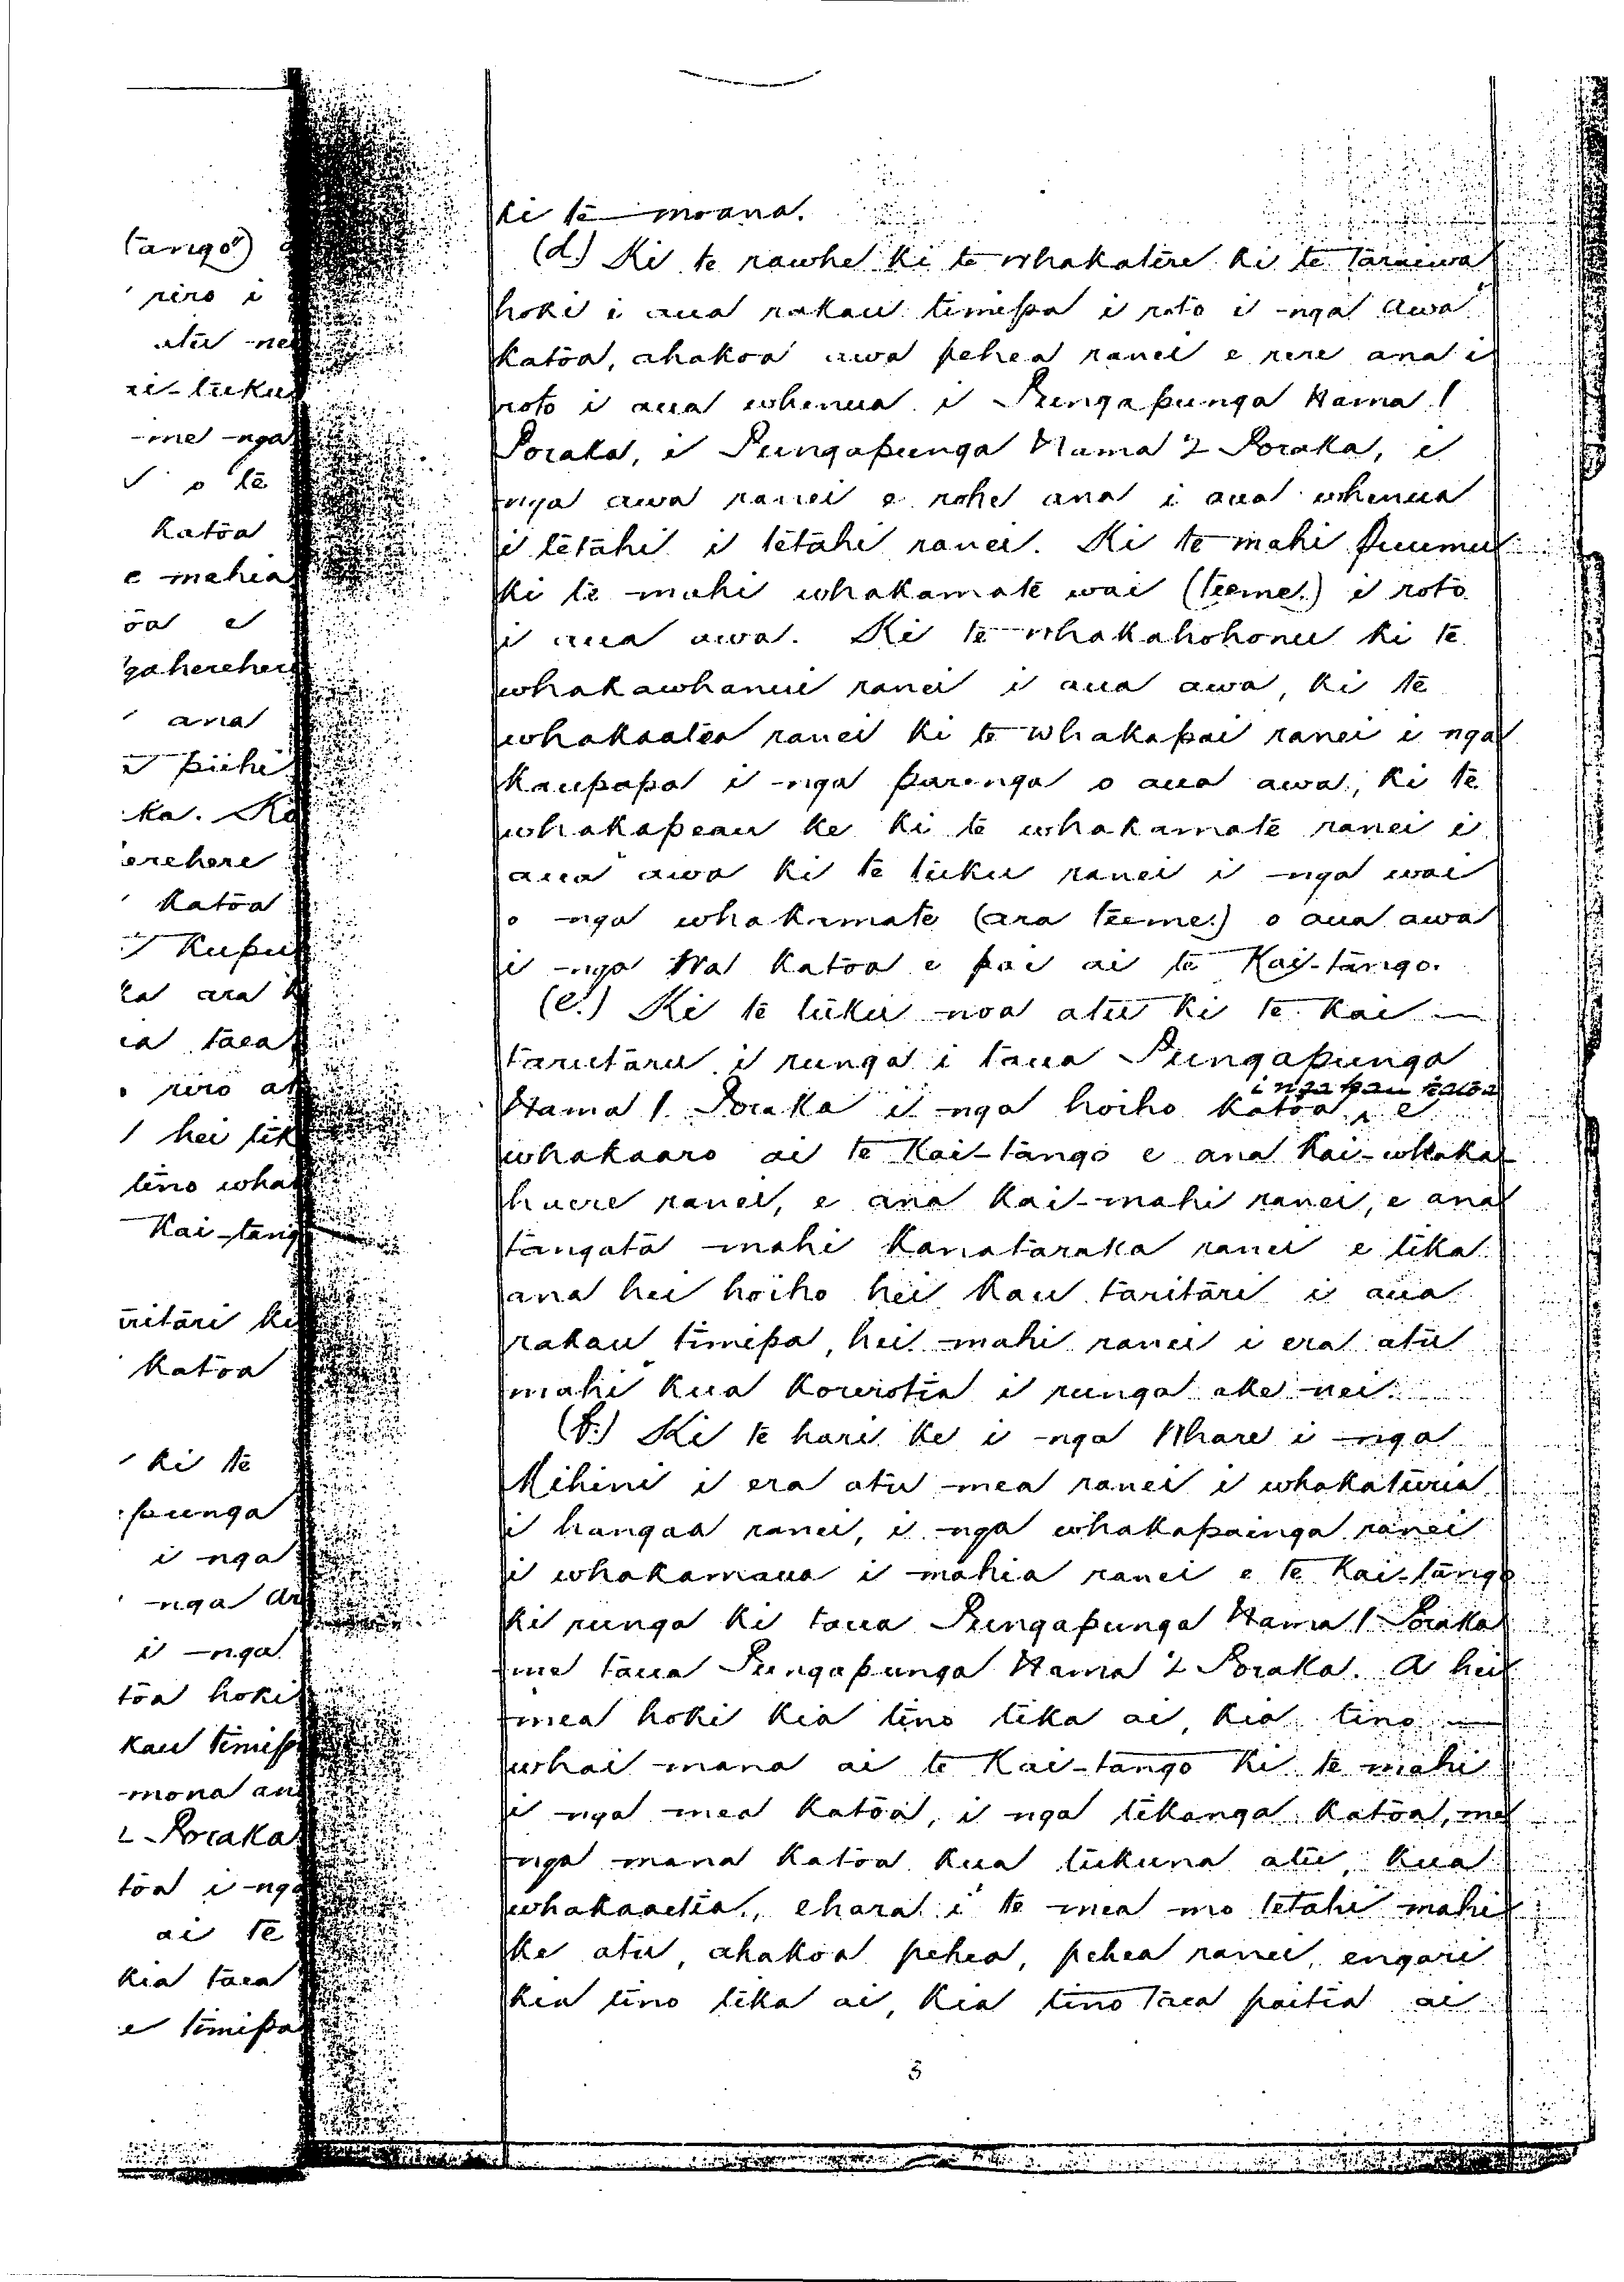 tango)
riro i
atu nei
ai-tuku
me nga
o te
katoa
e mahia
oa e
gaherehere
ana
i piihi
ka. Ko
erehere
katoa
kupu
ka ara k
ia taea
riro at
hei tik
tino wha
Kai-tang
aritari ki
katoa
ki te
punga
i nga
nga Ar
i nga
toa hoki
kau timip
mona an
2 Poraka
toa i nga
ai te
kia taea
e timipa
ki te moana.
(d.) Ki te rawhe ki te whakatere ki te taraiwa
hoki i aua rakau timipa i roto i nga awa
katoa, ahakoa awa pehea ranei e rere ana i
roto i aua whenua i Pungapunga Nama 1
Poraka, i Pungapunga Nama 2 Poraka, i
nga awa ranei e rohe ana i aua whenua
i tetahi i tetahi ranei. Ki te mahi puumu
ki te mahi whakamate wai (teeme.) i roto
i aua awa. Ki te whakahohonu ki te
whakawhanui ranei i aua awa, ki te
whakaatea ranei ki te whakapai ranei i nga
kaupapa i nga parenga o aua awa, ki te
whakapeau ke ki te whakamate ranei i
aua awa ki te tuku ranei i nga wai
o nga whakamate (ara teeme.) o aua awa
i nga Wa katoa e pai ai te Kai-tango.
(e.) Ki te tuku noa atu ki te kai
tarutaru i runga i taua Pungapunga
i nga kau katoa
Nama 1 Poraka i nga hoiho katoa, e
whakaaro ai te Kai-tango e ana kai-whaka
haere ranei, e ana kai-mahi ranei, e ana
tangata mahi kanataraka ranei e tika
ana hei hoiho hei kau taritari i aua
rakau timipa, hei mahi ranei i era atu
mahi kua korerotia i runga ake nei.
(f.) Ki te hari ke i nga Whare i nga
Mihini i era atu mea ranei i whakaturia
i hangaa ranei, i nga whakapainga ranei
i whakamaua i mahia ranei e te Kai-tango
ki runga ki taua Pungapunga Nama 1 Poraka
me taua Pungapunga Nama 2 Poraka. A hei
mea hoki kia tino tika ai, kia tino
whai mana ai te Kai-tango ki te mahi
i nga mea katoa, i nga tikanga katoa, me
nga mana katoa kua tukuna atu, kua
whakaaetia, ehara i te mea mo tetahi mahi
ke atu, ahakoa pehea, pehea ranei, engari
kia tino tika ai, kia tino taea paitia ai
3